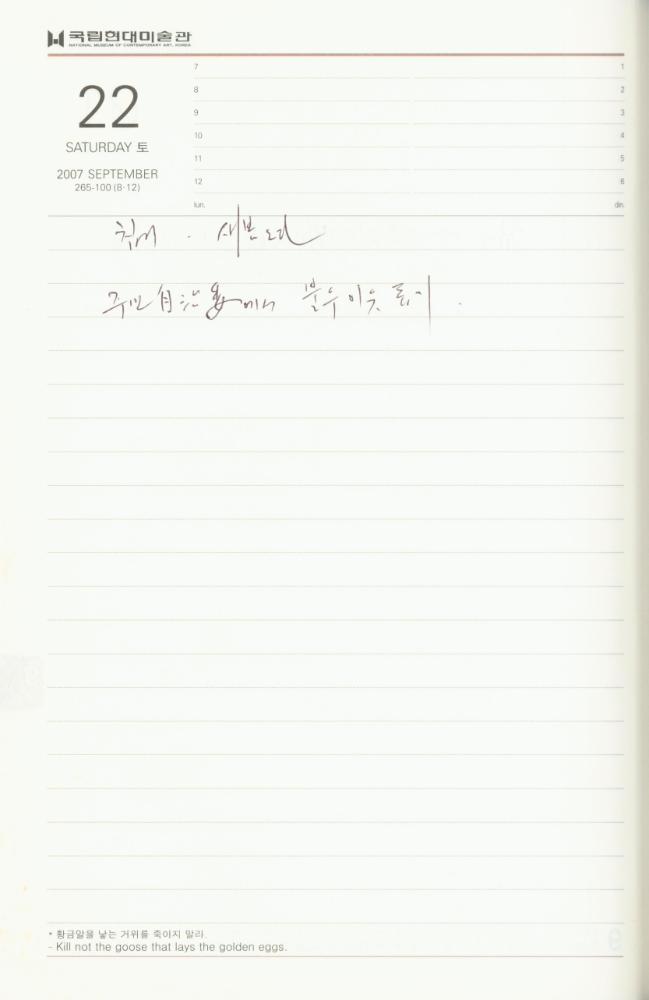 국립현대미술관
NATIONAL MUSEUM OF CONTEMPORARY ART, KOREA
22
SATURDAY 토
2007 SEPTEMBER
265-100 (8·12)
7 1
8 2
9 3
10 4
11 5
12 6
lun. din.
새벽
주민自治 에서 불우이웃 돕기.
* 황금알을 낳는 거위를 죽이지 말라.
- Kill not the goose that lays the golden eggs.